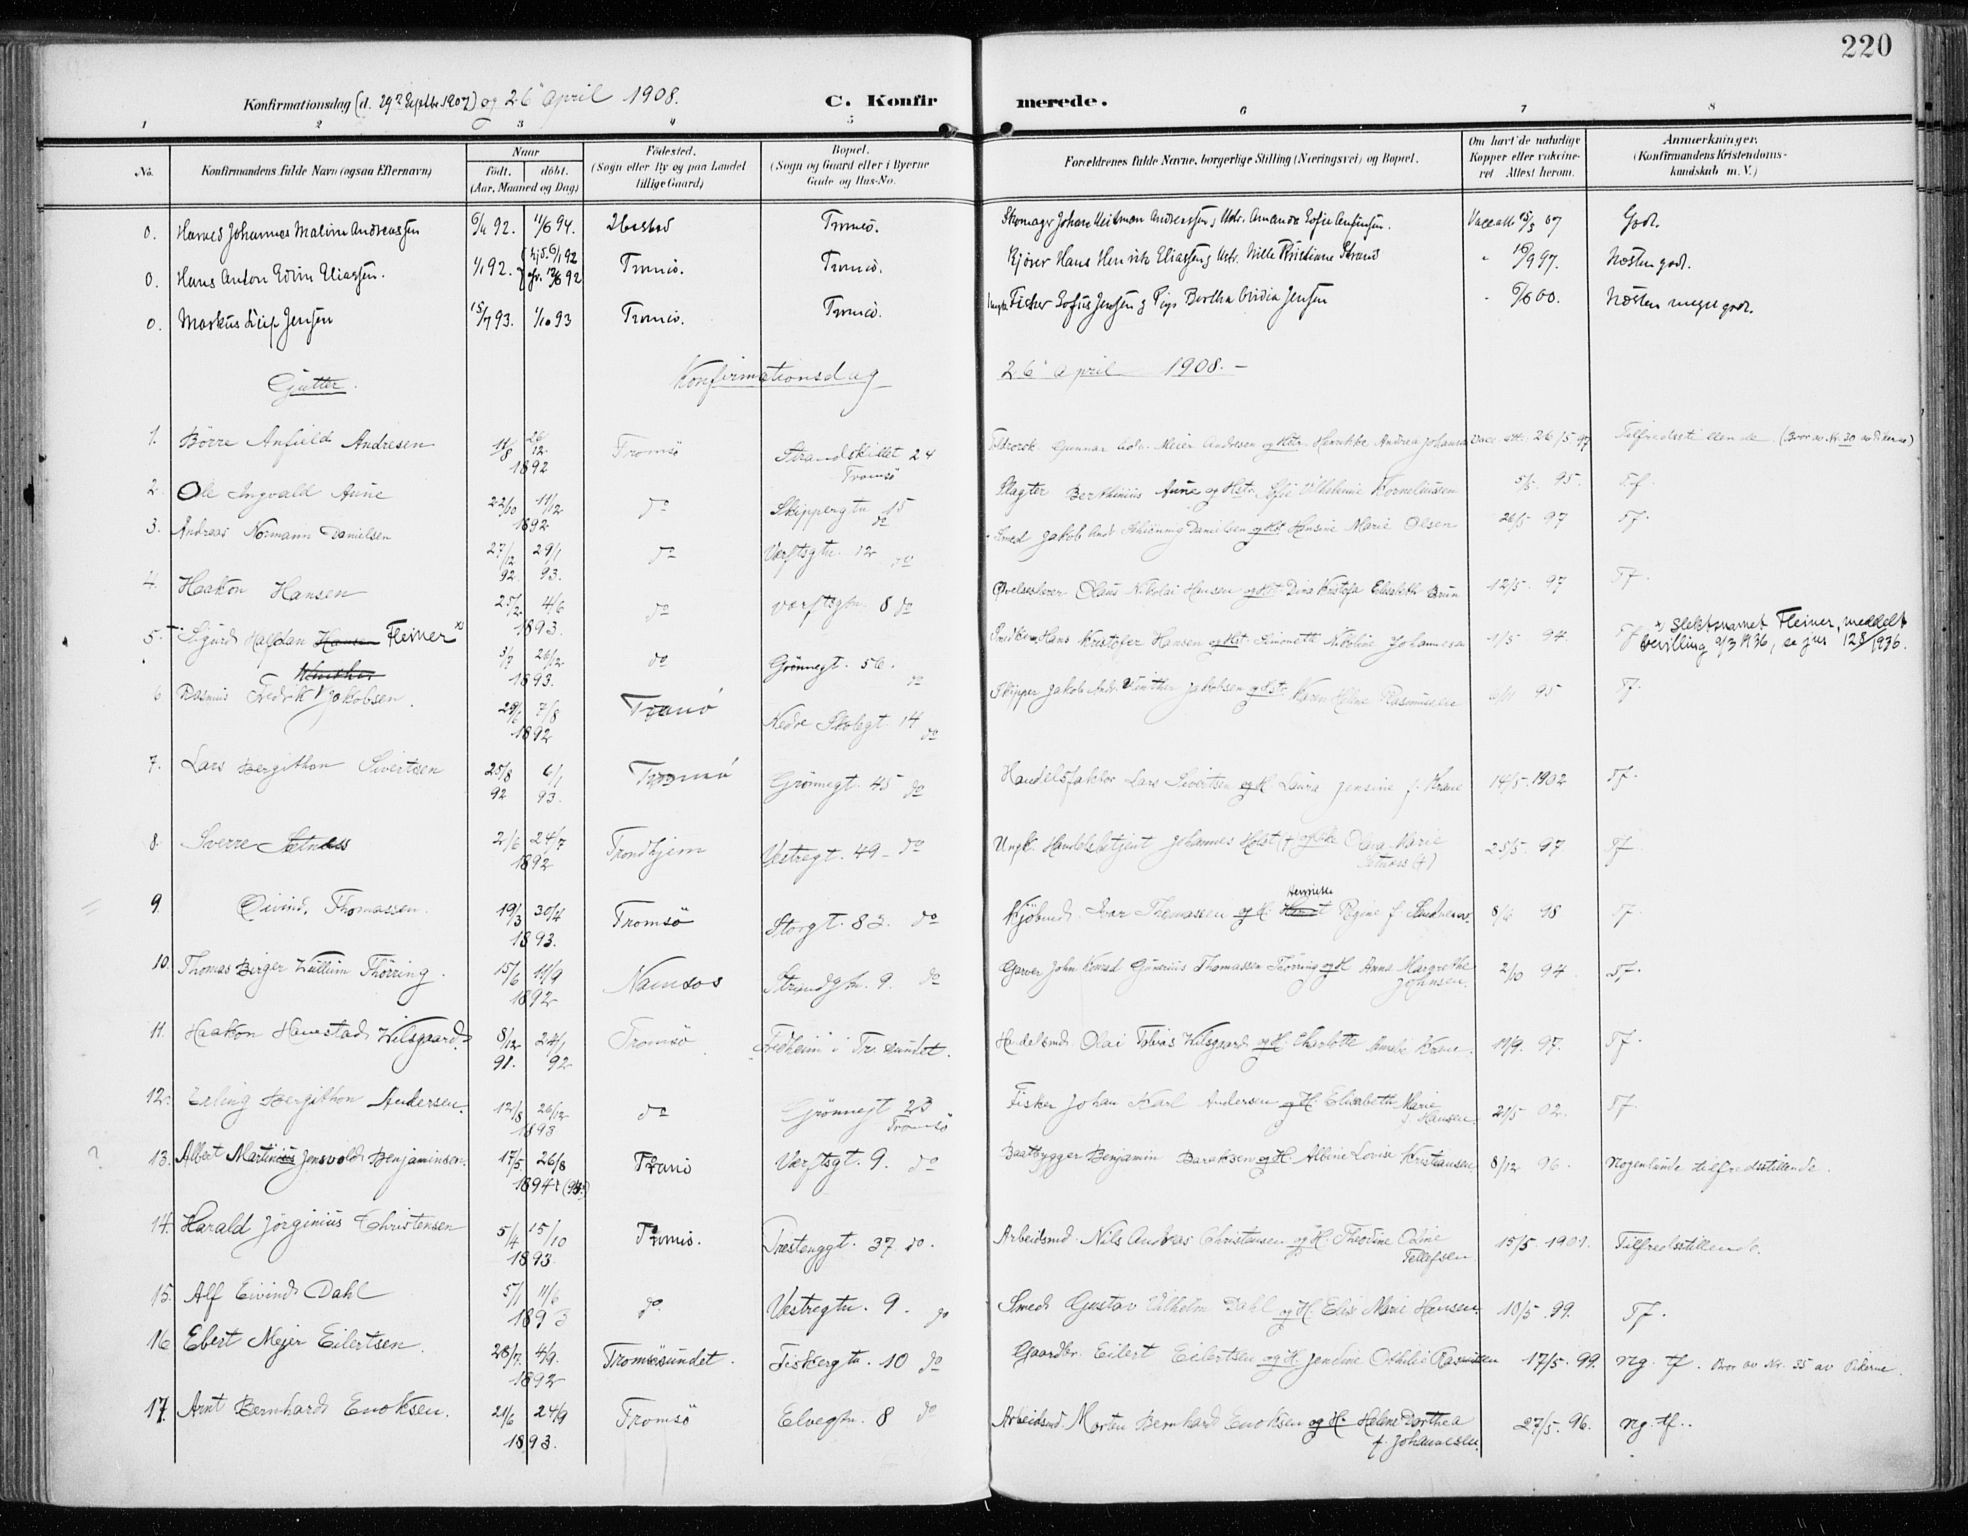 220
Konfirmationsdag (d. 29de Septbr 1907) og 26 april 1908. C. Konfirmerede.
1 2 3 4 5 6 7 8
No. Konfirmandens fulde Navn (ogsaa Efternavn) Naar født. døbt. (Aar, Maaned og Dag) Fødested. (Sogn eller By og paa Landet tillige Gaard) Bopæl. (Sogn og Gaard eller i Byerne Gade og Hus-No. Forældrenes fulde Navne, borgerlige Stilling (Næringsvei) og Bopæl. Om havt de naturlige Kopper eller vaccineret Attest herom. Anmærkninger. (Konfirmandens Kristendomskundskab m. V.)
0. Johannes Andreassen 92. 11/6 94. Tromsö. Skomager Johan Andreassen 15/3 07 Godt.
0. Hans Anton Edvin Eliassen. 1/1 92. Tromsö. Tromsö. Hans Henrik Eliassen 97. Næsten godt.
0. Markus Jensen 15/7 93. 1/10 93 Tromsö. Tromsö. Fisker Sofus Jensen & Pige Bertha Jensen 00. Næsten meget godt.
Gutter. Konfirmationsdag 26 april 1908. –
1. Börre Anfield Andresen 11/8 26/12 1892 Tromsö Strandskillet 24 Tromsö Gunnar Meier Andresen og Hstr. Andrea 26/5 97 Tilfredsstillende. (Bror av Nr. 30 av Pikerne)
2. Ole Ingvald Aune 22/10 11/12 1892 do Skippergtn. 15 do Slagter Berthinius Aune og Hstr. Sofie Vilhelmine Korneliussen 95. Tf.
3. Andreas Normann Danielsen 27/12 92. 29/1 93. do Værftsgtn. 12 do Smed Jakob Danielsen og Hst. Hansine Marie Olsen 26/5 97 Tf.
4. Haakon Hansen 25/2 4/6 1893. do Værftsgtn. 8 do Olaus Nikolai Hansen og Hst. Dina Kristofa Elisabeth Bruun 12/5 97 Tf.
5. Sigurd Halfdan Hansen Fleiner x) 26/2 1893. do Grönnegt. 56. do Hans Kristofer Hansen og Hst. Nikoline Johannesen 1/5 94. Tf x) Slektsnavnet Fleiner, meddelt bevilling 2/3 1936, se jnr 128/1936.
6. Rasmus Fredrik Jakobsen. 29/6 7/8 1892 Tromsö Nedre Skolegt 14 do Skipper Jakob Andr. Winther Jakobsen og Hstr. Karen Helene Rasmussen 95 Tf.
7. Lars Bergithon Sivertsen 25/8 92 6/1 93. Tromsö Grönnegt. 45 do Handelsfaktor Lars Sivertsen og H. Laura Jensine f. Krane 14/5 1902 Tf.
8. Sverre Sætness 2/6 24/7 1892 Trondhjem Vestregt. 49 – do Ungk. Handelsbetjent Johannes Holst (+) og Olava Marie Sætness (+) 25/5 97. Tf
9. Eivind Thomassen. 19/3 30/4 1893. Tromsö Storgt. 83. do Kjöbmd. Ivar Thomassen og H. Henriette Regine f. 8/6 98 Tf.
10. Thomas Birger Willum Thörring. 15/6 11/9 1892 Namsos Strandgtn. 9. do Garver John Konrad Gunerius Thomassen Thörring og H. Anna Margrethe Johnsen. 2/10 94. Tf.
11. Haakon Hanestad Wilsgaard. 8/12 91. 24/1 92 Tromsö Fredheim i Tr. sundet. Handelsmd. Olai Tobias Wilsgaard og H. Charlotte Amalie Krane. 11/9. 97. Tf.
12. Erling Bergithon Andersen. 12/8 26/12 1893 do Grönnegt 23 Tromsö Fisker Johan Karl Andersen og H. Elisabeth Marie f. Hansen. 21/5 02. Tf.
13. Albert Martinius Jensvold Benjaminsen. 17/5 26/8 1894 Tromsö Værftsgt. 9. do Baatbygger Benjamin Baraksen og H. Albine Lovise Kristiansen 8/12 96. Nogenlunde tilfredsstillende.
14. Harald Jörginius Christensen 5/4 15/10 1893. Tromsö. Præstenggt. 37 do. Arbeidsmd. Nils Andreas Christensen og H. Theodine Oline Tellefsen 15/5. 1901. Tilfredsstillende.
15. Alf Eivind Dahl 5/1 11/6 1893 do Vestregtn. 9. do Smed Gustav Vilhelm Dahl og H. Elis Marie Hansen. 10/5. 99. Tf.
16 Ebert Mejer Eilertsen. 28/7. 4/9. 1892 Tromsösundet. Fiskergtn. 10 do Gaardbr. Eilert Eilertsen og H. Jendine Othelie Rasmussen 17/5. 99. ng. tf. Bror av Nr. 35 av Pikerne.
17. Arnt Bernhard Enoksen. 21/6 24/9 1893. Tromsö Elvegtn. 8 do Arbeidsmd Morten Bernhard Enoksen og H. Helene Dorthea f. Johannesen. 27/5. 96. ng. tf..